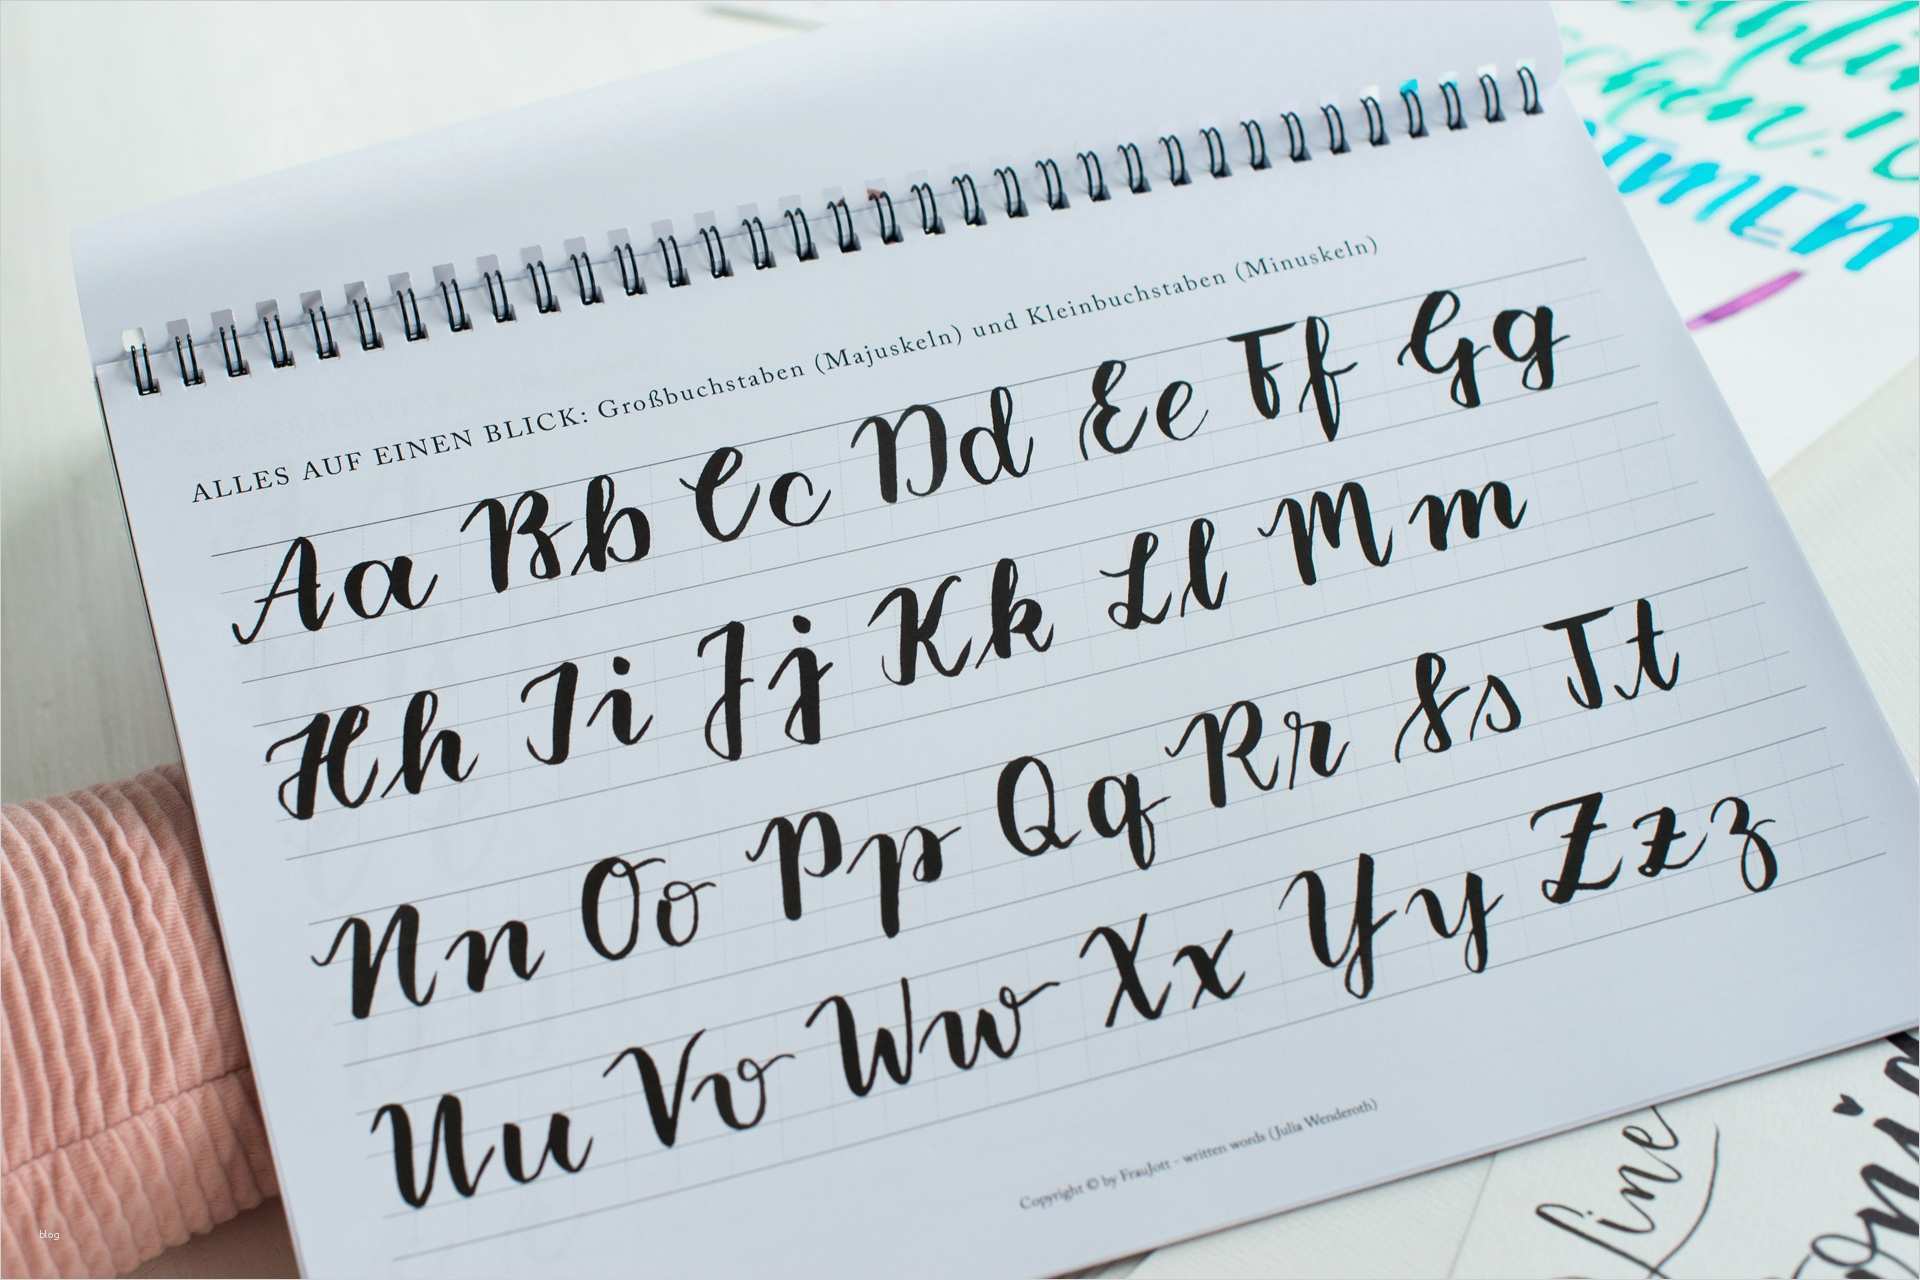 ALLES AUF EINEN BLICK: Großbuchstaben (Majuskeln) und Kleinbuchstaben (Minuskeln)
Aa Bb Cc Dd Ee Ff Gg
Hh Ii Jj Kk Ll Mm
Nn Oo Pp Qq Rr Ss Tt
Uu Vv Ww Xx Yy Zz z
Copyright © by FrauJott - written words (Julia Wenderoth)
fine
blog